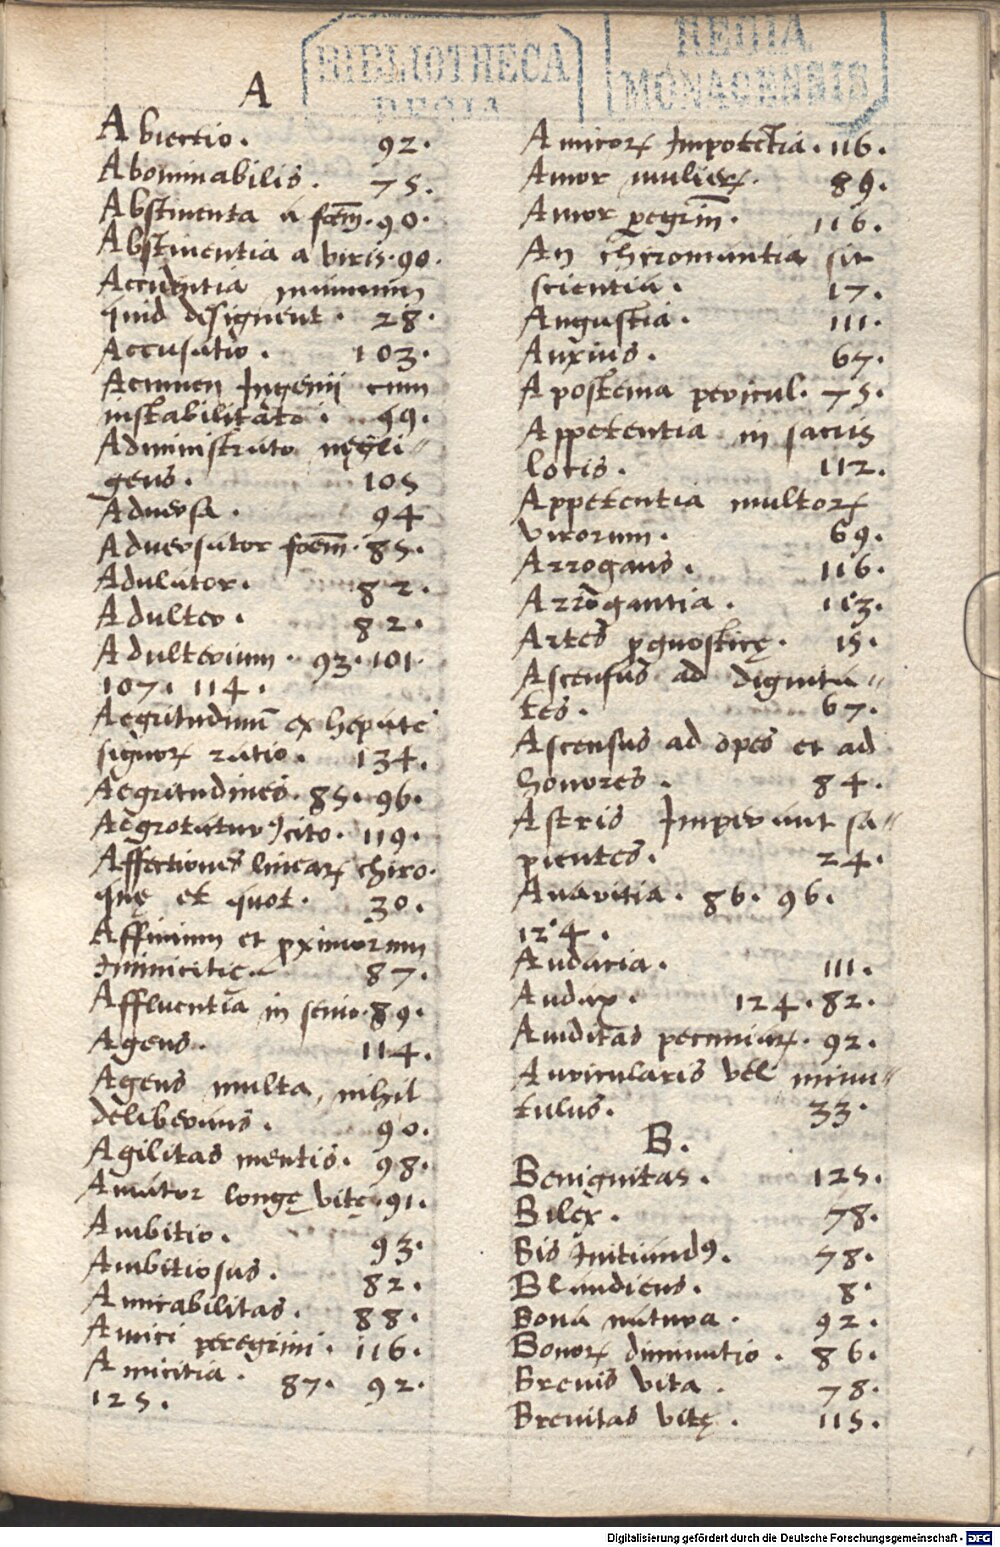 BIBLIOTHECA
REGIA
REGIA
MONACENSIS
A
Abiectio. 92.
Abominabilis. 75.
Abstinenta a foem̄. 90.
Abstinentia a viris. 90.
Accidentia
quid designent. 28.
Accusatio. 103.
Acumen Ingenii cum
instabilitate. 49.
Administratio negli"
gens. 105
Aduersa. 94
Aduersator foem̄. 85.
Adulator. 82.
Adulter. 82.
Adulterium. 93. 101.
107. 114.
Aegritudinū ex hepate
signoꝝ ratio. 134.
Aegritudines. 85. 96.
Aegrotatur cito. 119.
Affectiones linearꝝ chiro.
quę et quot. 30.
Affinium et ꝓximorum
Inimicitię. 87.
Affluentia in senio. 89.
Agens. 114.
Agens multa, nihil
deliberans. 90.
Agilitas mentis. 98.
Amator longę vitę. 91.
Ambitio. 93.
Ambitiosus. 82.
Amicabilitas. 88.
Amici peregrini. 116.
Amicitia. 87. 92.
125.
Amicoꝝ Impotētia. 116.
Amor mulierꝝ. 89.
Amor ꝑegrin̄. 116.
An chiromantia sit
scientia. 17.
Angustia. 111.
Anxius. 67.
Apostema pericul. 75.
Appetentia in sacris
locis. 112.
Appetentia multoꝝ
virorum. 69.
Arrogans. 116.
Arrogantia. 113.
Artes ꝓgnosticę. 15.
Ascensus ad dignita"
tes. 67.
Ascensus ad opes et ad
honores. 84.
Astris Imperant sa"
pientes. 24.
Auaritia. 86. 96.
124.
Audacia. 111.
Audax. 124. 82.
Auiditas pecuniarꝝ. 92.
Auricularis vel minu"
tulus. 33.
B.
Benignitas. 125.
Bilex. 78.
Bis Initiandꝰ. 78.
Blandiens. 8.
Bona natura. 92.
Bonoꝝ diminutio. 86.
Breuis vita. 78.
Breuitas vitę. 115.
Digitalisierung gefördert durch die Deutsche Forschungsgemeinschaft - DFG